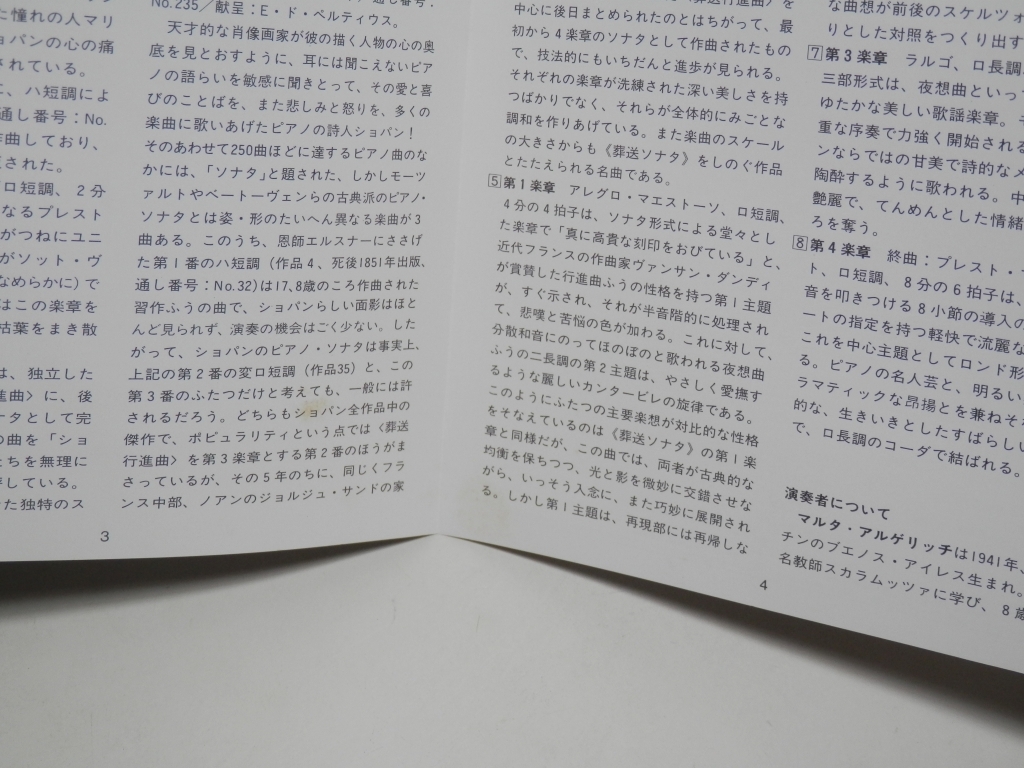 た憧れの人マリ
ョパンの心の痛
されている。
に、ハ短調によ
通し番号：No.
作曲しており、
された。
ロ短調、2分
なるプレスト
がつねにユニ
がソット・ヴ
なめらかに)で
はこの楽章を
枯葉をまき散
は、独立した
進曲〉に、後
ナタとして完
の曲を「ショ
たちを無理に
している。
た独特のス
No.235／献呈：E・ド・ペルティウス。
天才的な肖像画家が彼の描く人物の心の奥
底を見とおすように、耳には聞こえないピア
ノの語らいを敏感に聞きとって、その愛と喜
びのことばを、また悲しみと怒りを、多くの
楽曲に歌いあげたピアノの詩人ショパン！
そのあわせて250曲ほどに達するピアノ曲のな
かには、「ソナタ」と題された、しかしモーツ
ァルトやベートーヴェンらの古典派のピアノ・
ソナタとは姿・形のたいへん異なる楽曲が3
曲ある。このうち、恩師エルスナーにささげ
た第1番のハ短調（作品4、死後1851年出版、
通し番号：No.32)は17、8歳のころ作曲された
習作ふうの曲で、ショパンらしい面影はほと
んど見られず、演奏の機会はごく少ない。した
がって、ショパンのピアノ・ソナタは事実上、
上記の第2番の変ロ短調（作品35）と、この
第3番のふたつだけと考えても、一般には許
されるだろう。どちらもショパン全作品中の
傑作で、ポピュラリティという点では〈葬送
行進曲〉を第3楽章とする第2番のほうがま
さっているが、その5年のちに、同じくフラ
ンス中部、ノアンのジョルジュ・サンドの家
3
中心に後日まとめられたのとはちがって、最
初から4楽章のソナタとして作曲されたもの
で、技法的にもいちだんと進歩が見られる。
それぞれの楽章が洗練された深い美しさを持
つばかりでなく、それらが全体的にみごとな
調和を作りあげている。また楽曲のスケール
の大きさからも《葬送ソナタ》をしのぐ作品
とたたえられる名曲である。
5 第1楽章　アレグロ・マエストーソ、ロ短調、
4分の4拍子は、ソナタ形式による堂々とし
た楽章で「真に高貴な刻印をおびている」と、
近代フランスの作曲家ヴァンサン・ダンディ
が賞賛した行進曲ふうの性格を持つ第1主題
が、すぐ示され、それが半音階的に処理され
て、悲嘆と苦悩の色が加わる。これに対して、
分散和音にのってほのぼのと歌われる夜想曲
ふうの二長調の第2主題は、やさしく愛撫す
るような麗しいカンタービレの旋律である。
このようにふたつの主要楽想が対比的な性格
をそなえているのは《葬送ソナタ》の第1楽
章と同様だが、この曲では、両者が古典的な
均衡を保ちつつ、光と影を微妙に交錯させな
がら、いっそう入念に、また巧妙に展開され
る。しかし第1主題は、再現部には再帰しな
な曲想が前後のスケルツォ
りとした対照をつくり出す
7 第3楽章　ラルゴ、ロ長調
三部形式は、夜想曲といっ
ゆたかな美しい歌謡楽章。
重な序奏で力強く開始される
ンならではの甘美で詩的なメ
陶酔するように歌われる。中
艶麗で、てんめんとした情緒
ろを奪う。
8 第4楽章　終曲：プレスト・
ト、ロ短調、8分の6拍子は、
音を叩きつける8小節の導入の
ートの指定を持つ軽快で流麗な
これを中心主題としてロンド形
る。ピアノの名人芸と、明るい
ラマティックな昂揚とを兼ねそ
的な、生きいきとしたすばらしい
で、ロ長調のコーダで結ばれる。
演奏者について
マルタ・アルゲリッチは1941年、
チンのブエノス・アイレス生まれ。
名教師スカラムッツァに学び、8歳
4